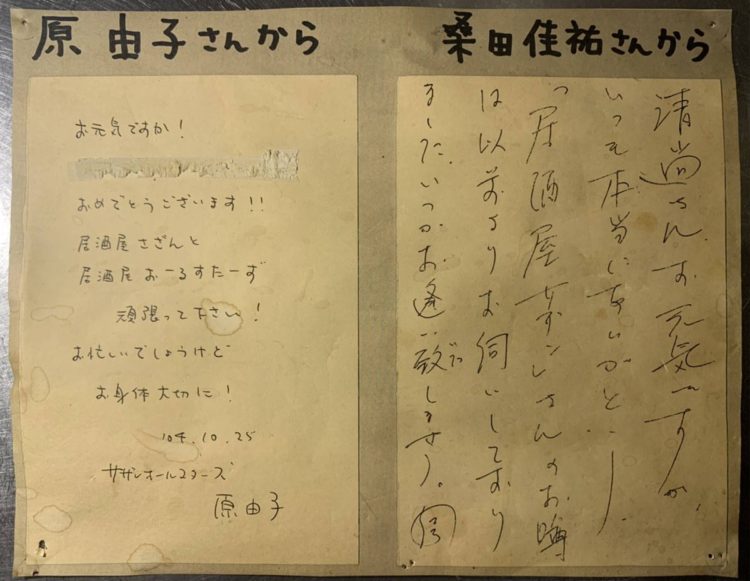 原 由子さんから
お元気ですか!
おめでとうございます!!
居酒屋さざんと
居酒屋おーるすたーず
頑張って下さい!
お忙しいでしょうけど
お身体大切に!
'04.10.25
サザンオールスターズ
原由子
桑田佳祐さんから
さん、お元気ですか。
いつも本当にありがとー!
「居酒屋サザン」さんのお噂
は以前よりお伺いしており
ました。いつかお逢い致しませう。